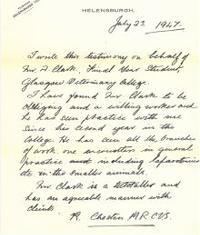 HELENSBURGH.
July 22 1947.
I wrote this testimony on behalf of
Mr A. Clark. Final Year Student,
Glasgow Veterinary College.
I have found Mr Clark to be
obliging and a willing worker and
he has seen practice with me
since his second year in the
College. He has seen all the branches
of work one encounters in general
practice most including laparotomies
etc in the smaller animals.
Mr Clark is a teetotaller and
has an agreeable manner with
clients.
R. M.R.C.V.S.